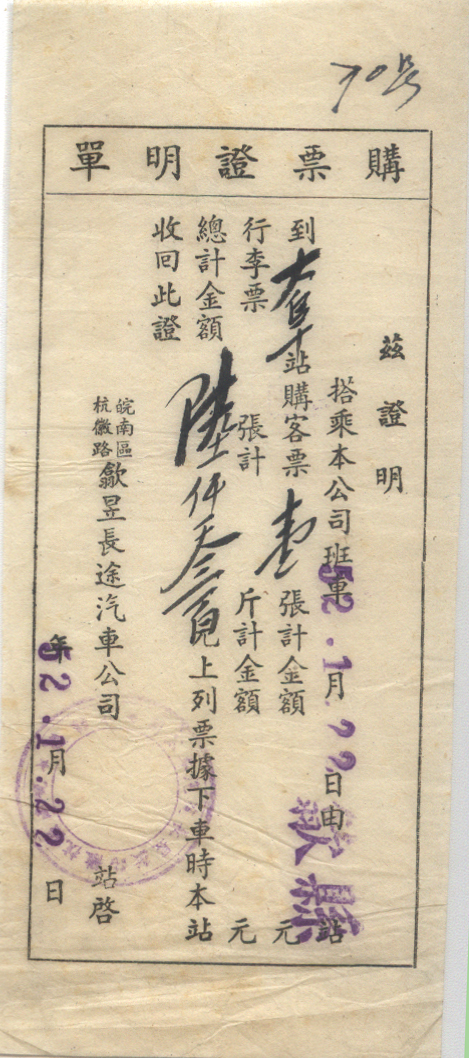 購票證明單
茲證明
搭乘本公司班車 52.1月22日由歙縣站
到大阜站購客票壹張計金額元
行李票張計斤計金額元
總計金額陸仟叁百上列票據下車時本站
收回此證
皖南區
杭徽路
歙昱長途汽車公司站啓
52年.1月.22日